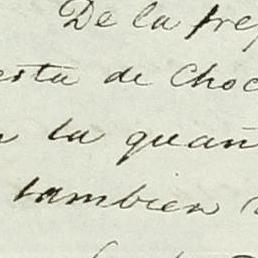 De la pre
esta de Choc
la quañ
tambien